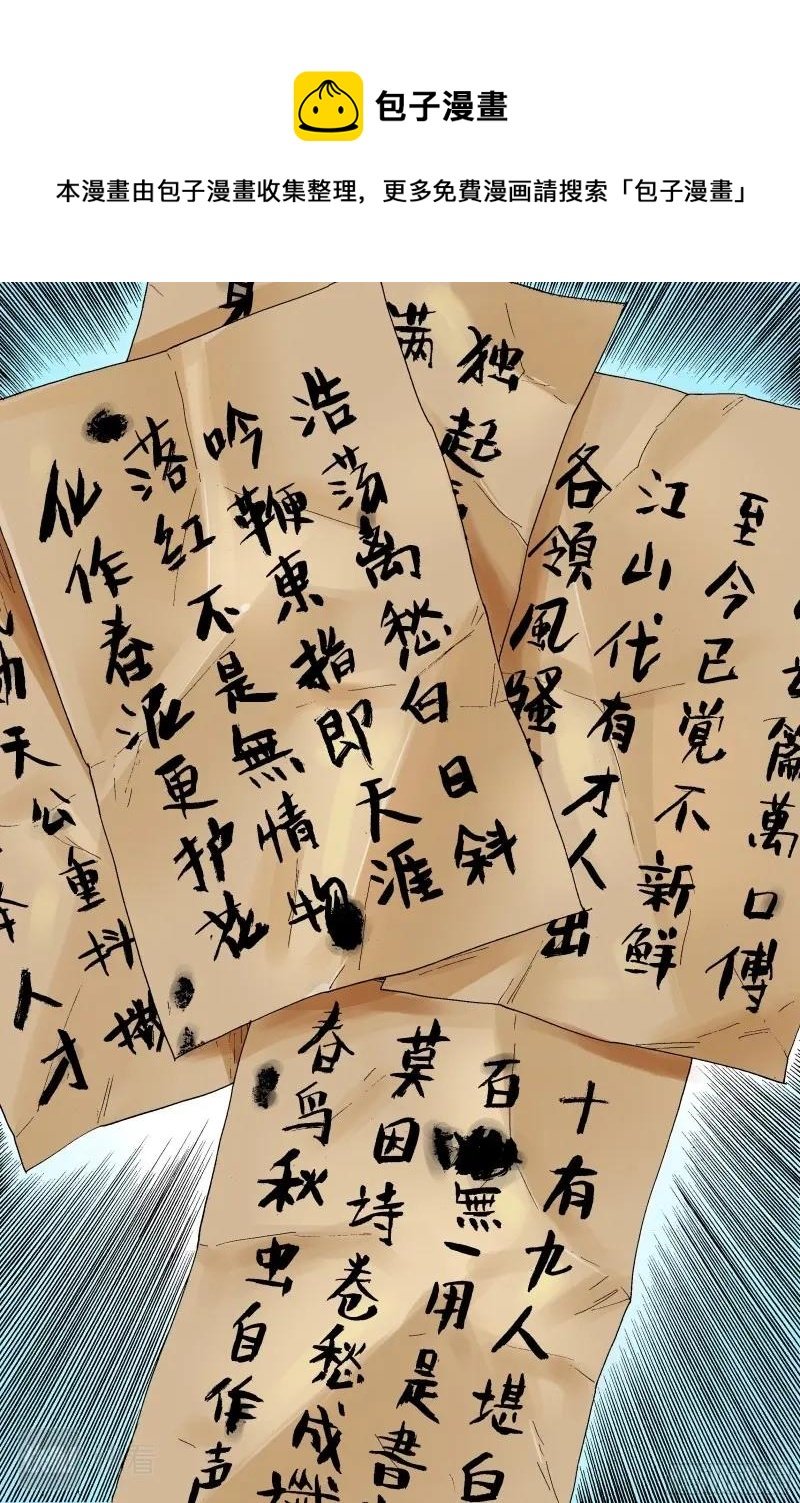 包子漫畫
本漫畫由包子漫畫收集整理，更多免費漫画請搜索「包子漫畫」
独起
满
身
浩荡离愁白日斜
吟鞭東指即天涯
落红不是無情物
化作春泥更护花
篇萬口傳
至今已覺不新鮮
江山代有才人出
各領風騷
天公重抖擞
人才
十有九人堪白
百無一用是書
莫因诗卷愁成
春鸟秋虫自作声